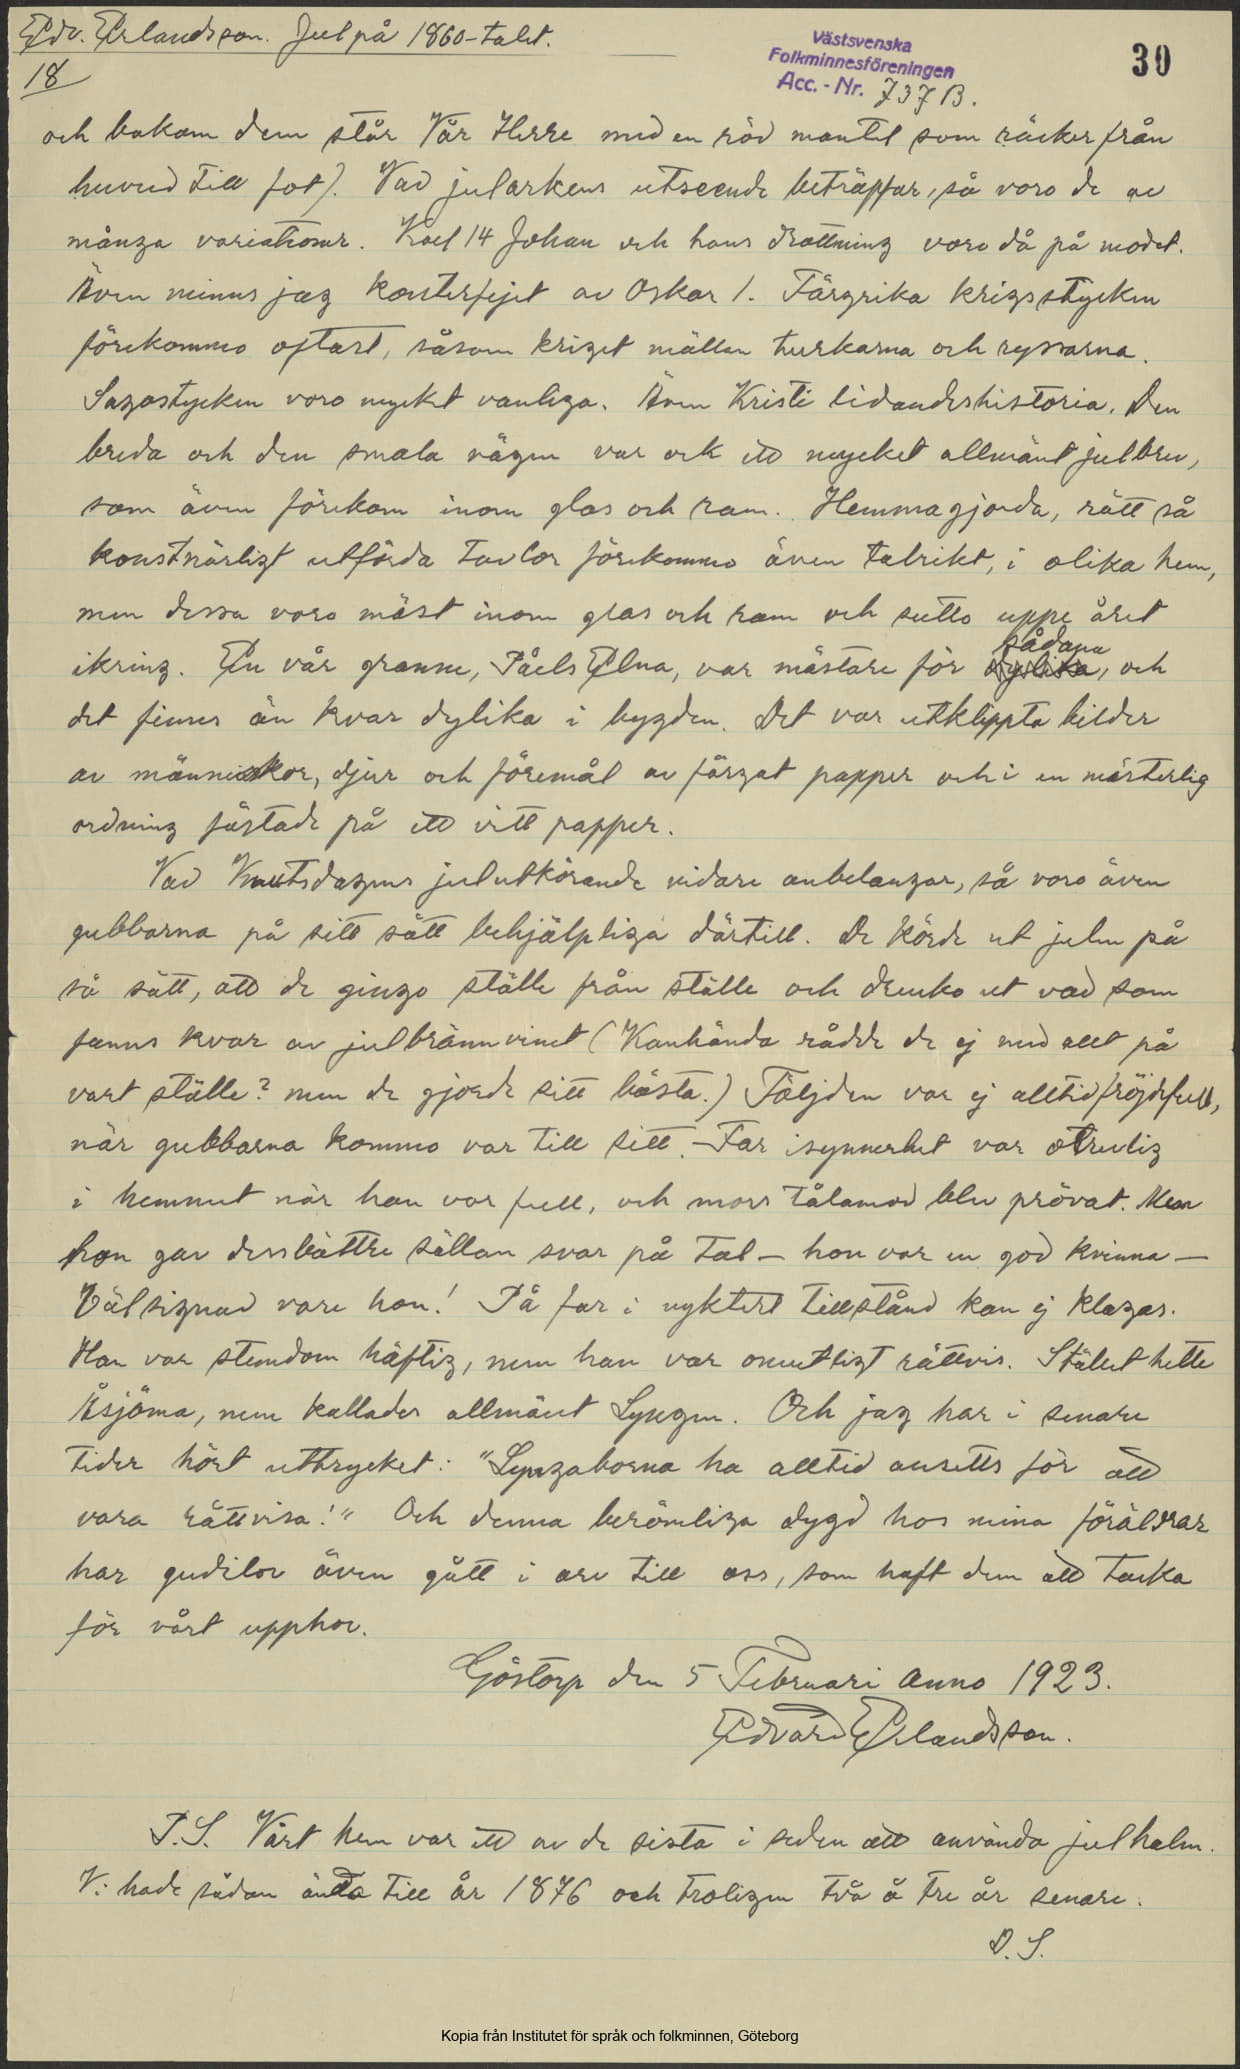 Edv. Erlandsson. Jul på 1860-talet.
18
Västsvenska
Folkminnesföreningen
Acc. - Nr. 737 B.
30
och bakom dem står Vår Herre med en röd mantel som räcker från
huvud till fot). Vad jularkens utseende beträffar, så voro de av
många variationer. Karl 14 Johan och hans drottning voro då på modet.
Även minns jag konterfejet av Oskar I. Färgrika krigsstycken
förekommo oftast, såsom kriget mällan turkarna och ryssarna.
Sagostycken voro mycket vanliga. Även Kristi lidandeshistoria. Den
breda och den smala vägen var ock ett mycket allmänt julbrev,
som även förekom inom glas och ram. Hemmagjorda, rätt så
konstnärligt utförda tavlor förekommo även talrikt, i olika hem,
men dessa voro mäst inom glas och ram och sutto uppe året
ikring. En vår granne, Påels Elna, var mästare för sådana, och
det finnes än kvar dylika i bygden. Det var utklippta bilder
av människor, djur och föremål av färgat papper och i en mästerlig
ordning fästade på ett vitt papper.
Vad Knutsdagens julutkörande vidare anbelangar, så voro även
gubbarna på sitt sätt behjälpliga därtill. De körde ut julen på
så sätt, att de gingo ställe från ställe och drucko ut vad som
fanns kvar av julbrännvinet (Kanhända rådde de ej med allt på
vart ställe? men de gjorde sitt bästa.) Följden var ej alltid fröjdefull,
när gubbarna kommo var till sitt. - Far isynnerhet var otrevlig
i hemmet när han var full, och mors tålamod blev prövat. Men
hon gav dessbättre sällan svar på tal — hon var en god kvinna —
Välsignad vare hon! På far i nyktert tillstånd kan ej klagas.
Han var stundom häftig, men han var omutligt rättvis. Stället hette
Åsjöma, men kallades allmänt Lyngen. Och jag har i senare
tider hört uttrycket: "Lyngaborna ha alltid ansetts för att
vara rättvisa!" Och denna berömliga dygd hos mina föräldrar
har gudilov även gått i arv till oss, som haft dem att tacka
för vårt upphov.
Göstorp den 5 Februari Anno 1923.
Edvard Erlandsson.
P.S. Vårt hem var ett av de sista i seden att använda julhalm.
Vi hade sådan ända till år 1876 och troligen två å tre år senare.
D.S.
Kopia från Institutet för språk och folkminnen, Göteborg